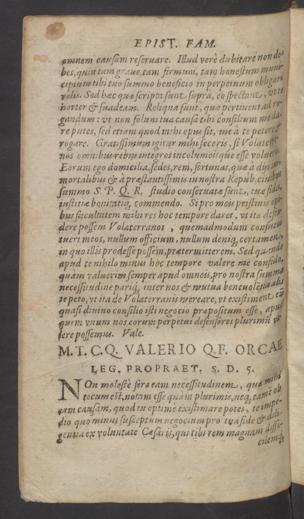 EPIST. FAM.
omnem causam reseruare. Illud verè dubitare non de-
bes, quin tam graue, tam firmum, tam honestum muni-
cipium tibi tuo summo beneficio in perpetuum obligari
velis. Sed hæc quæ scripta sunt suprà, eò spectant, vt te
horter & suadeam. Reliqua sunt, quæ pertinent ad ro-
gandum: vt non solum tua causâ tibi consilium me da-
re putes, sed etiam quod mihi opus sit, me à te petere &
rogare. Gratissimum igitur mihi feceris, si Volaterra-
nos omnibus rebus integros incolumésque esse volueris.
Eorum ego domicilia, sedes, rem, fortunas, quæ à diis im-
mortalibus & à præstantissimis in nostra Repub. ciuibus
summo S. P. Q. R. studio conseruatæ sunt, tuæ fidei,
iustitiæ bonitatiq; commendo. Si pro meis pristinis opi-
bus facultatem mihi res hoc tempore daret, vt ita defen-
dere possem Volaterranos, quemadmodum consueui
tueri meos, nullum officium, nullum deniq; certamen,
in quo illis prodesse possem, prætermitterem. Sed quando
apud te nihilo minus hoc tempore valere me confido,
quàm valuerim semper apud omneis, pro nostra summa
necessitudine pariq; inter nos & mutua beneuolentia abs
te peto, vt ita de Volaterranis mereare, vt existiment eum
quasi diuino consilio isti negocio præpositum esse, apud
quem vnum nos eorum perpetui defensores plurimùm va-
lere possemus. Vale.
M. T. C. Q. VALERIO Q. F. ORCAE
LEG. PROPRAET. S. D. 5.
NOn molestè fero eam necessitudinem, quæ mihi
tecum est, notam esse quàm plurimis, neq; tamen ob
eam causam, quod tu optimè existimare potes, te impe-
dio quo minus susceptum negocium pro tua fide & dili-
gentia ex voluntate Cæsaris, qui tibi rem magnam diffi-
cilem&